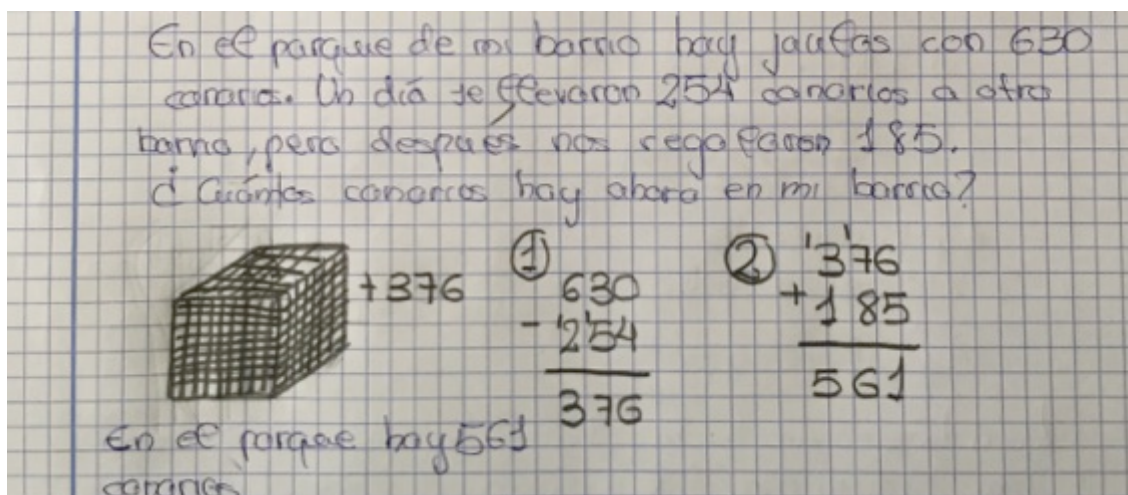 En el parque de mi barrio hay jaulas con 630
canarios. Un día se llevaron 254 canarios a otro
barrio, pero después nos regalaron 185.
¿Cuántos canarios hay ahora en mi barrio?
+376
① 630
- 254
376
② 376
+ 185
561
En el parque hay 561
canarios